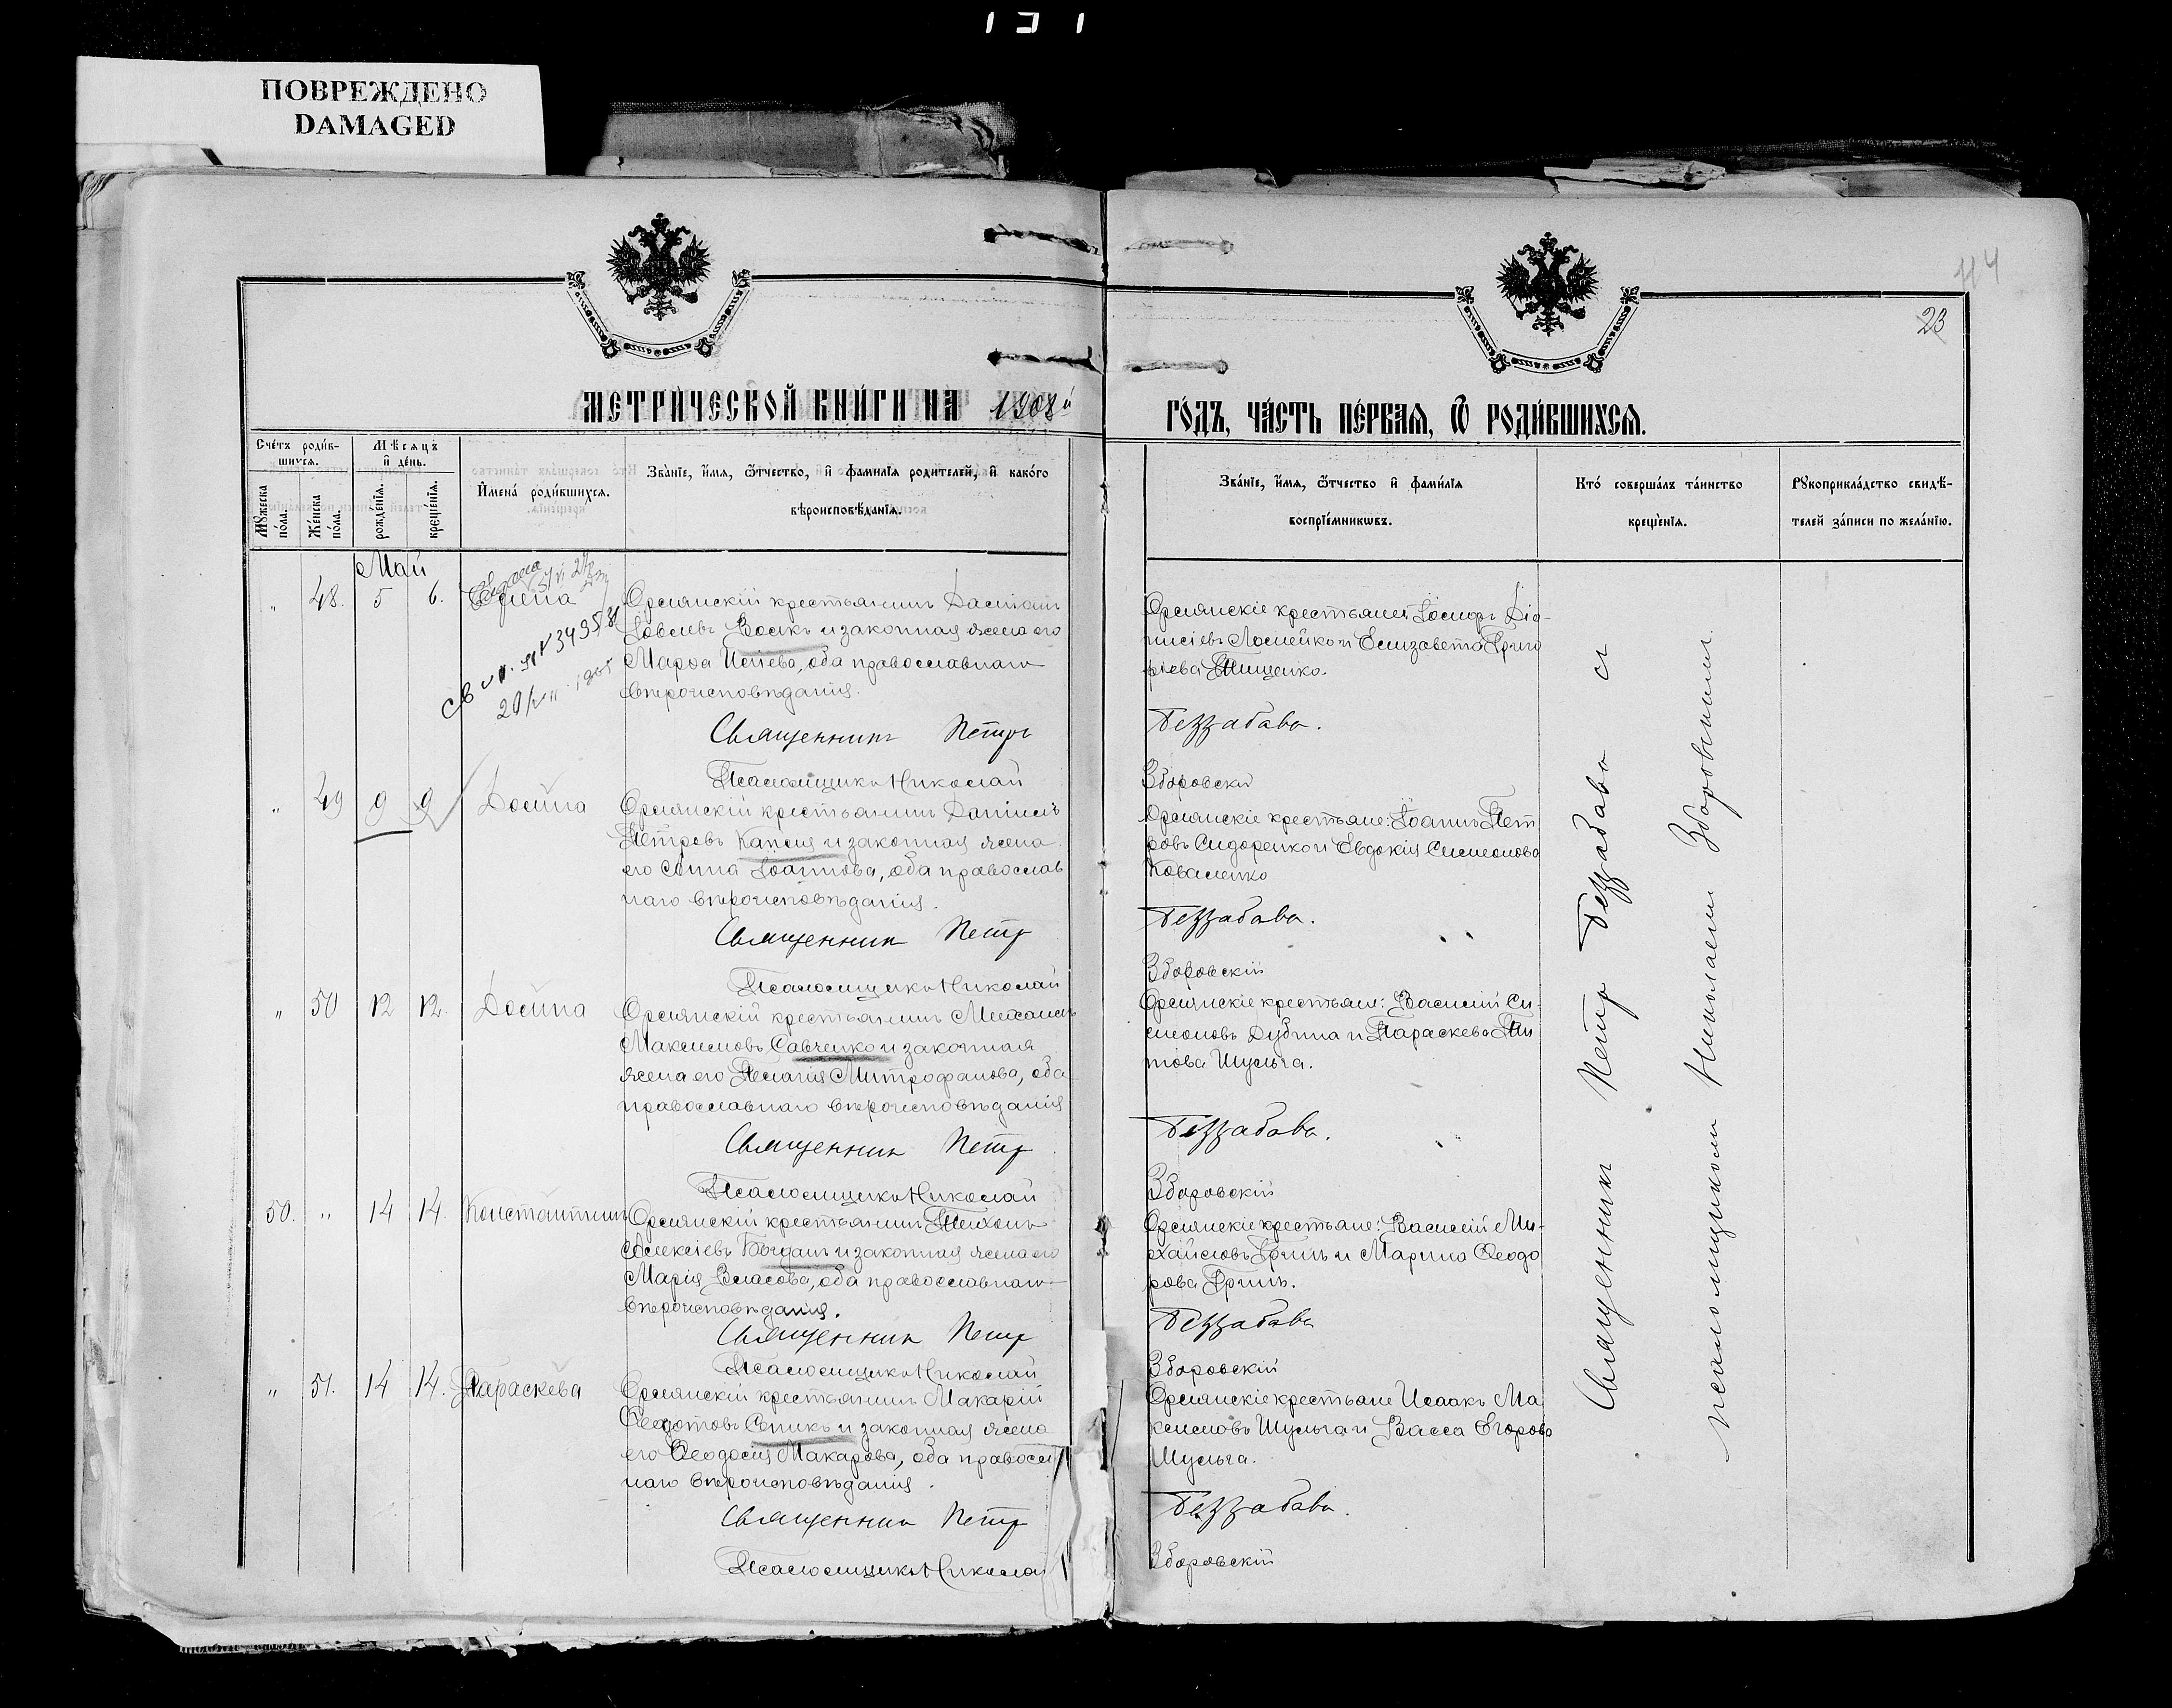 ПОВРЕЖДЕНО
DAMAGED
114
23
МЕТРИЧЕСКОЙ КНИГИ НА 1908й
ГОДЪ, ЧАСТЬ ПЕРВАЯ, Ѿ РОДИВШИХСЯ.
Счетъ родившихся.
Мужеска пола.
Женска пола.
Мѣсяцъ и день.
рожденія.
крещенія.
Имена родившихся.
Званіе, имя, ѿтчество, и фамилія родителей, и какого
вѣроисповѣданія.
Званіе, имя, ѿтчество и фамилія
воспріемникѡвъ.
Кто совершалъ таинство
крещенія.
Рукоприкладство свидѣ-
телей записи по желанію.
Май
" 48. 5 6. Елена
Орлянскій крестьянинъ Даміанъ
Іовлевъ Волкъ и законная жена его
Марѳа Исаева, оба православнаго
вѣроисповѣданія.
Священникъ Петръ
Псаломщикъ Николай
Орлянскіе крестьяне: Іосифъ Діо-
нисіевъ Ломейко и Елизавета Григо
рьева Тищенко.
Беззабава.
Зборовскій
" 49 9 9 Домна
Орлянскій крестьянинъ Даніилъ
Петровъ Капля и законная жена
его Анна Іоаннова, оба православ
наго вѣроисповѣданія.
Священникъ Петръ
Псаломщикъ Николай
Орлянскіе крестьяне: Іоаннъ Пет
ровъ Сидоренко и Евдокія Симонова
Коваленко
Беззабава.
Зборовскій
" 50 12 12. Домна
Орлянскій крестьянинъ Михаилъ
Максимовъ Савченко и законная
жена его Пелагія Митрофанова, оба
православнаго вѣроисповѣданія
Священникъ Петръ
Псаломщикъ Николай
Орлянскіе крестьяне: Василій Си-
моновъ Дубина и Параскева Ти
това Шульга.
Беззабава.
Зборовскій
50. " 14 14. Константинъ
Орлянскій крестьянинъ Тихонъ
Алексіевъ Богданъ и законная жена его
Марія Власова, оба православнаго
вѣроисповѣданія.
Священникъ Петръ
Псаломщикъ Николай
Орлянскіе крестьяне: Василій Ми-
хайловъ Гринь и Марина Ѳеодо
рова Гринь.
Беззабава
Зборовскій
" 51. 14 14. Параскева
Орлянскій крестьянинъ Макарій
Ѳедотовъ Сѣпикъ и законная жена
его Ѳеодосія Макарова, оба правосл
наго вѣроисповѣданія.
Священникъ Петръ
Псаломщикъ Николай
Орлянскіе крестьяне Исаакъ Ма
ксимовъ Шульга и Васса Егорова
Шульга.
Беззабава.
Зборовскій
Священникъ Петръ Беззабава съ
псаломщикомъ Николаемъ Зборовскимъ.